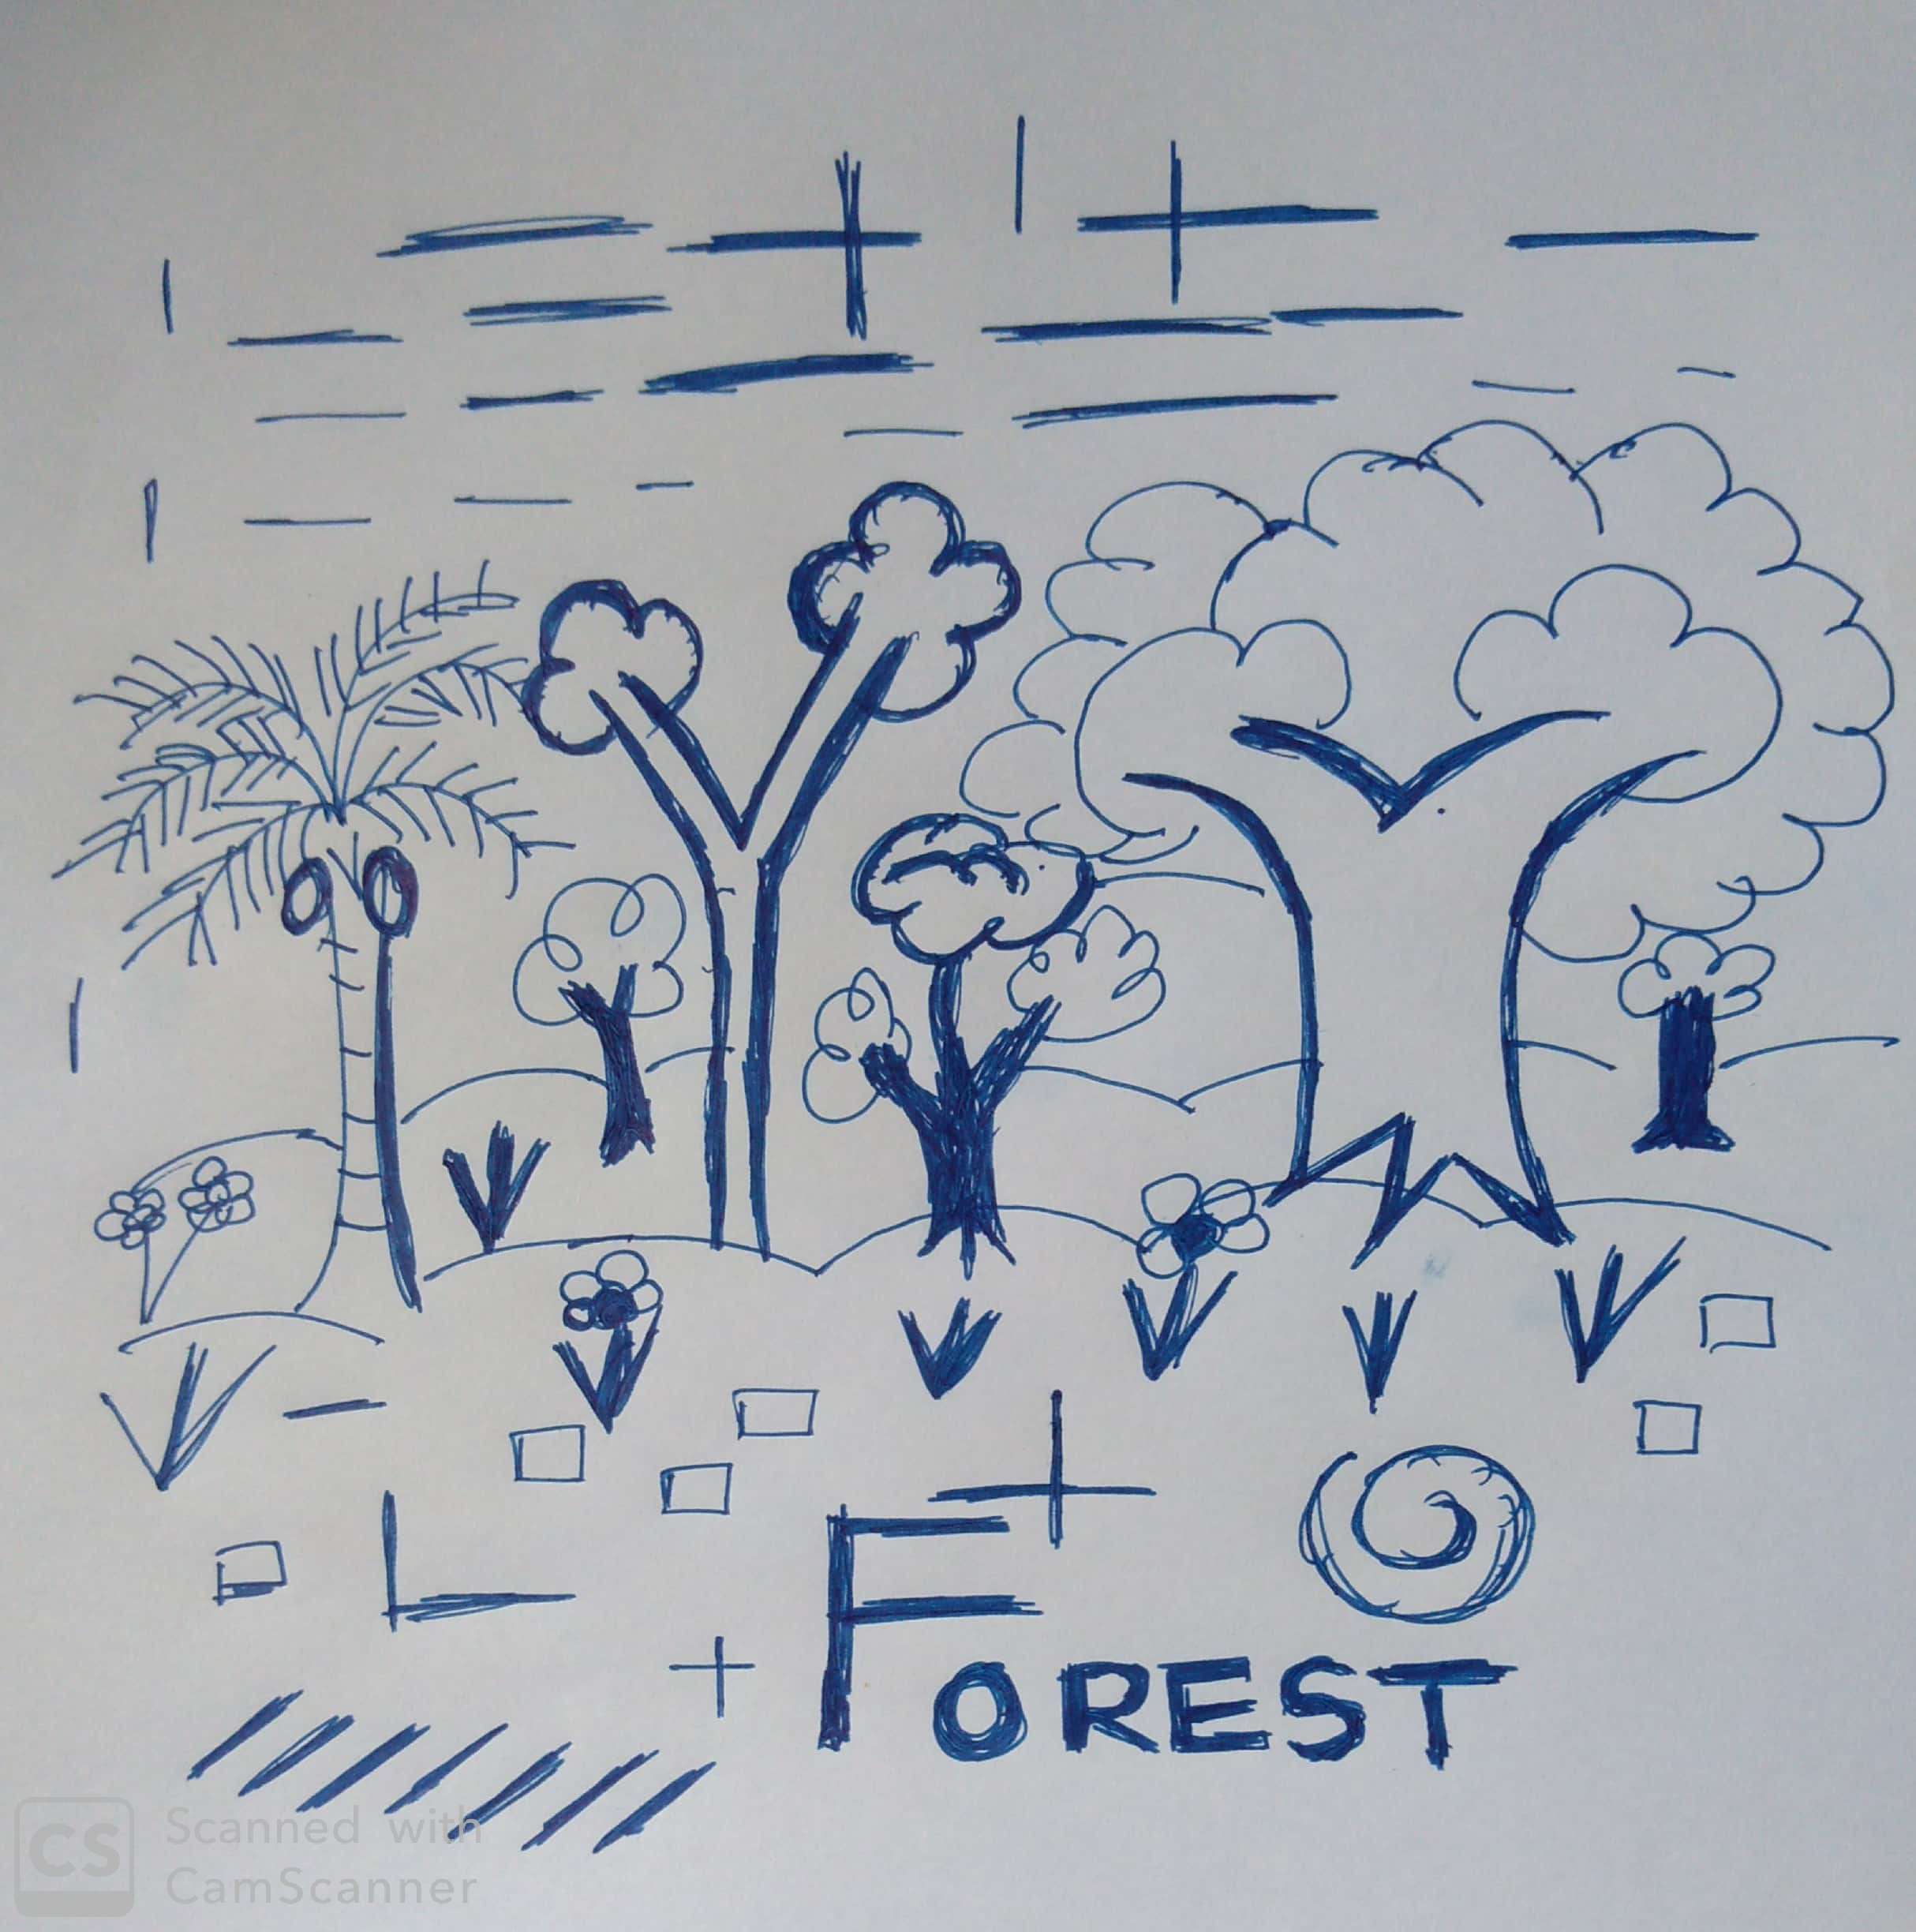 FOREST
CS Scanned with
CamScanner